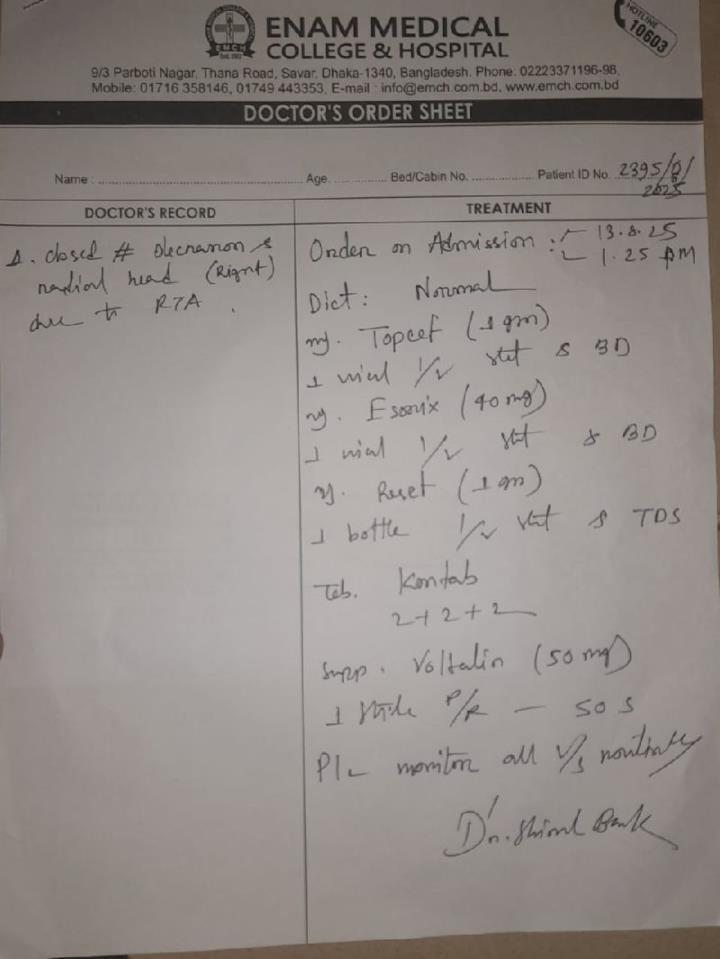 ENAM MEDICAL
COLLEGE & HOSPITAL
EMCH
HOTLINE
10603
9/3 Parboti Nagar, Thana Road, Savar, Dhaka-1340, Bangladesh. Phone: 02223371196-98,
Mobile: 01716 358146, 01749 443353, E-mail : info@emch.com.bd, www.emch.com.bd
DOCTOR'S ORDER SHEET
Name : Age. Bed/Cabin No. Patient ID No. 2395/8/
2025
DOCTOR'S RECORD
closed # Olecranon &
radial head (Right)
due to RTA.
TREATMENT
Order on Admission : 13.8.25
1.25 PM
Diet: Normal
Inj. Topcef (1 gm)
1 vial I/V stat & BD
Inj. Esonix (40 mg)
1 vial I/V stat & BD
Inj. Reset (1 gm)
1 bottle I/V stat & TDS
Tab. Kontab
2+2+2
Supp. Voltalin (50 mg)
1 stick P/R — SOS
Plz monitor all V/S routinely
Dr.